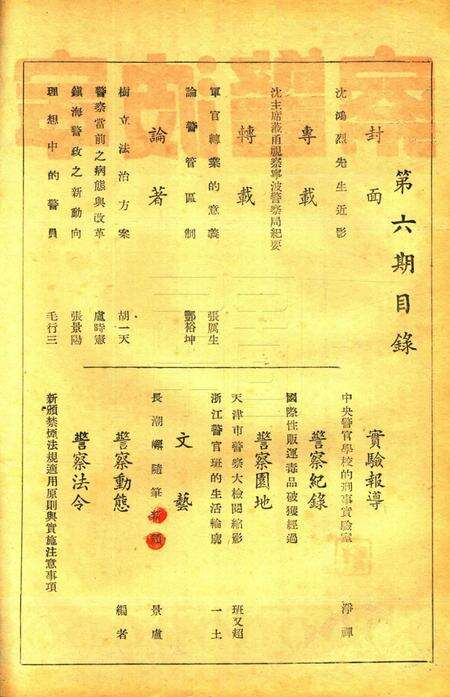 第六期目錄
封面
沈鴻烈先生近影
專載
沈主席蒞甬視察寧波警察局紀要
轉載
軍官轉業的意義 張厲生
論警管區制 酆裕坤
論著
樹立法治方案 胡一天
警察當前之病態與改革 盧時憲
鎮海警政之新動向 張景陽
理想中的警員 毛行三
實驗報導
中央警官學校的刑事實驗室 淨禪
警察紀錄
國際性販運毒品破獲經過
警察園地
天津市警察大檢閱縮影 班又超
浙江警官班的生活輪廓 一土
文藝
長潮嶼隨筆 景盧
警察動態 編者
警察法令
新頒禁煙法規適用原則與實施注意事項